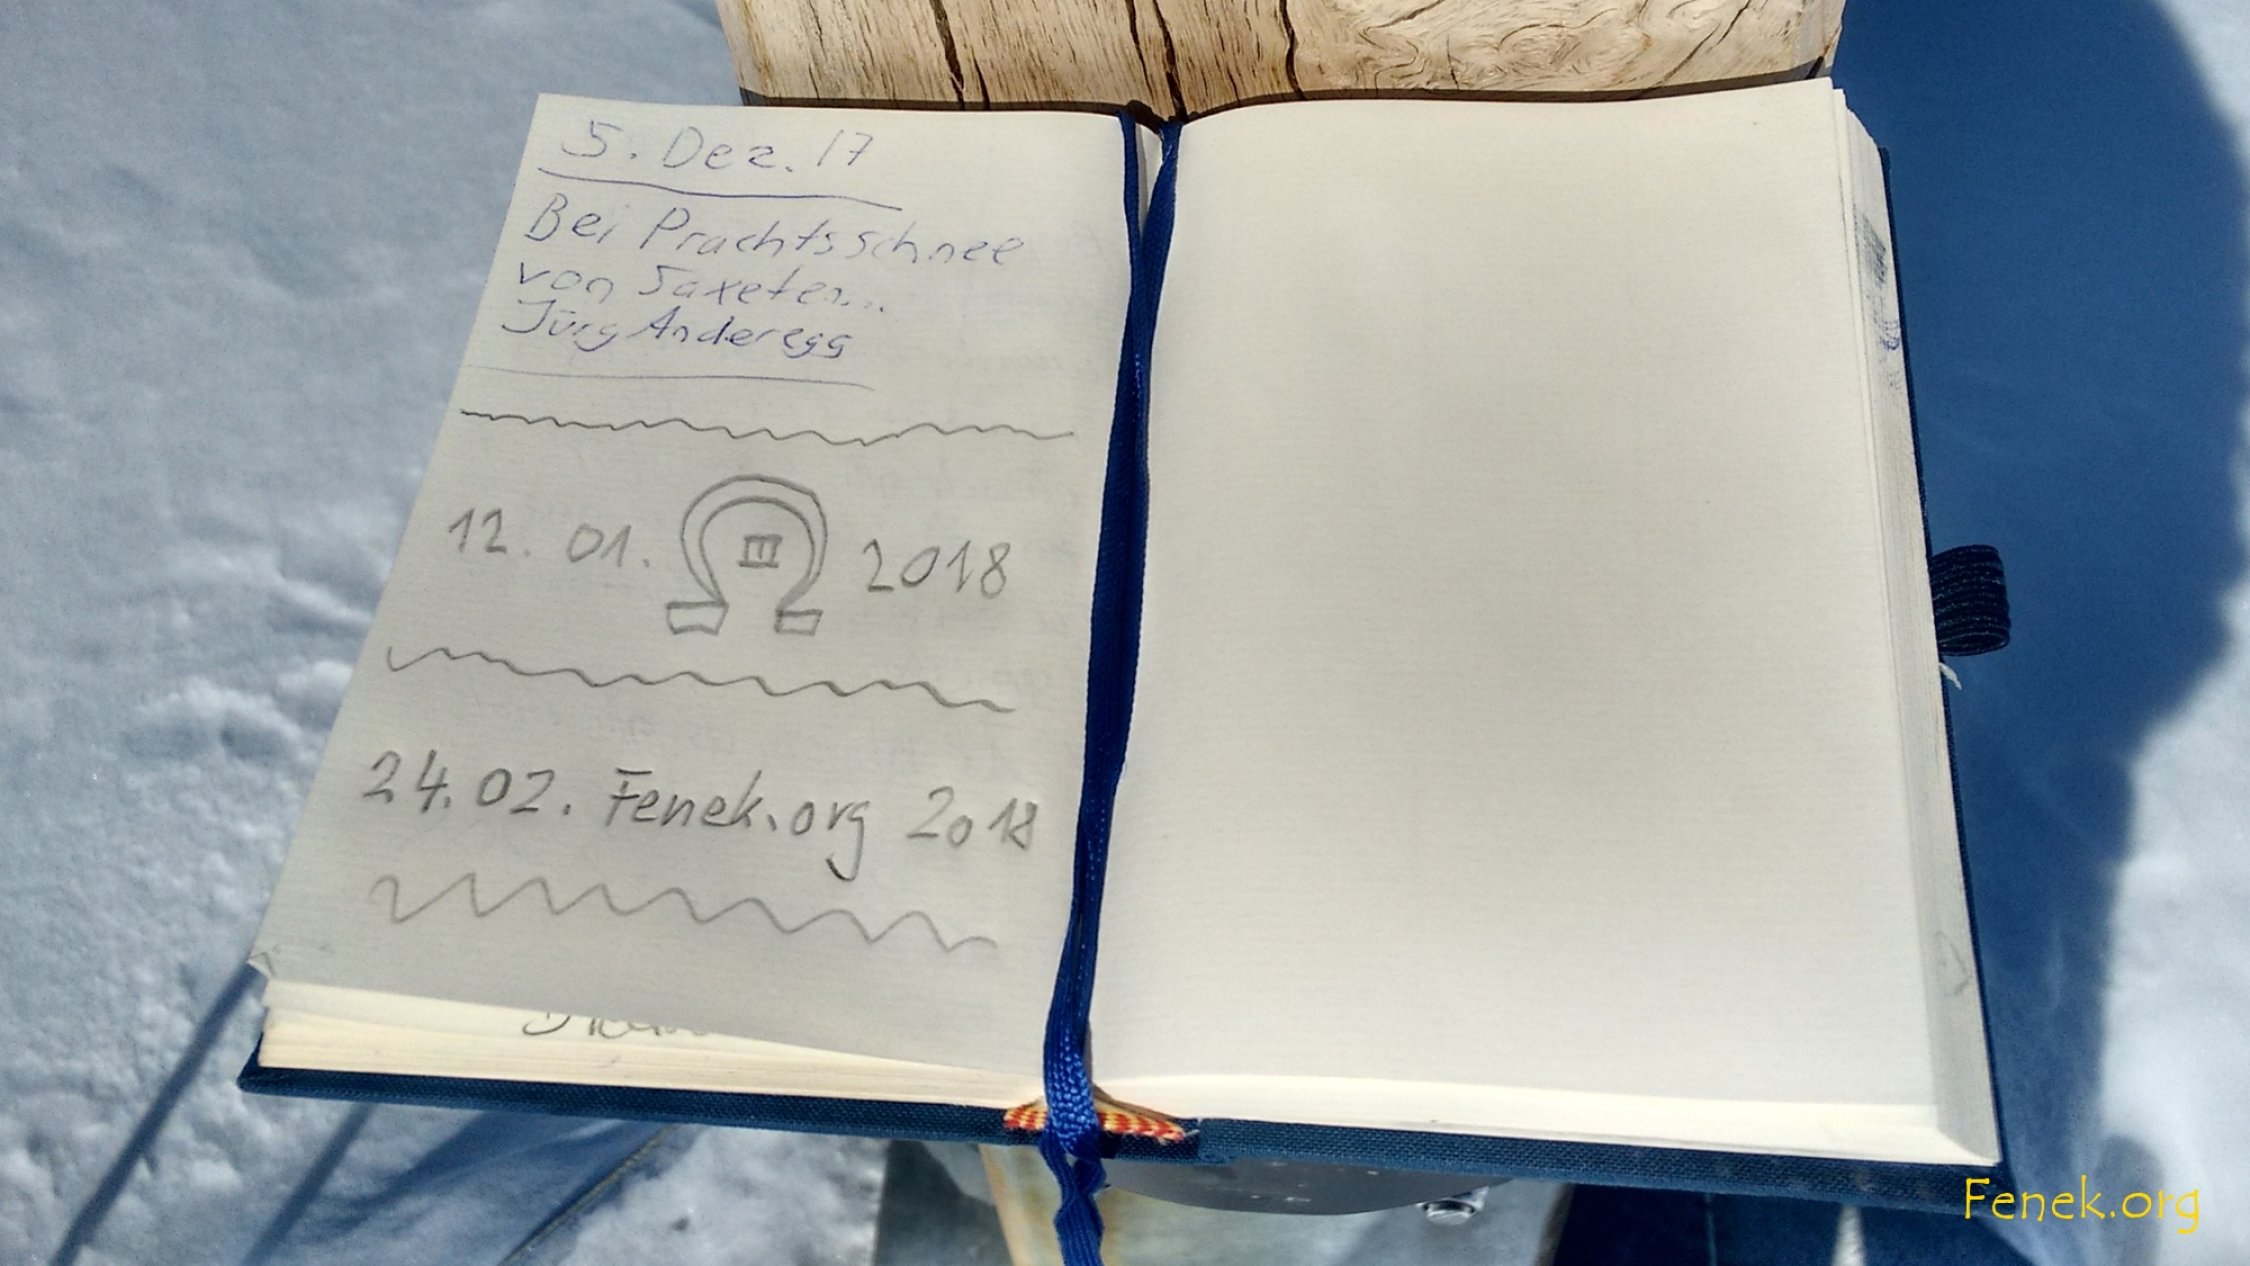 5. Dez. 17
Bei Prachtsschnee
von Saxeten...
Jürg Anderegg
12. 01. III 2018
24.02. Fenek.org 2018
Fenek.org